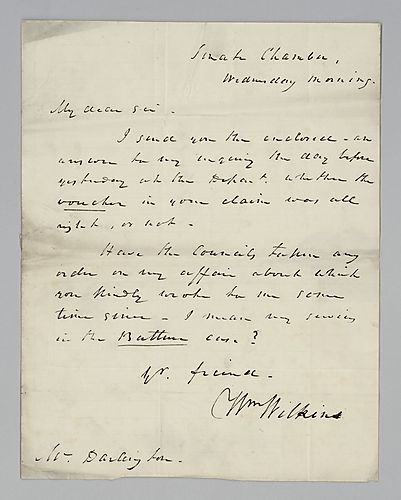 Senate Chamber,
Wednesday Morning.
My dear Sir -
I send you the enclosed - an
answer to my inquiry the day before
yesterday at the Depart. whether the
voucher in your claim was all
right, or not -
Have the Councils taken any
order on my affair about which
you kindly wrote to me some
time since - I mean my services
in the Batture case?
Yr. friend -
Wm Wilkins
Mr. Darlington -